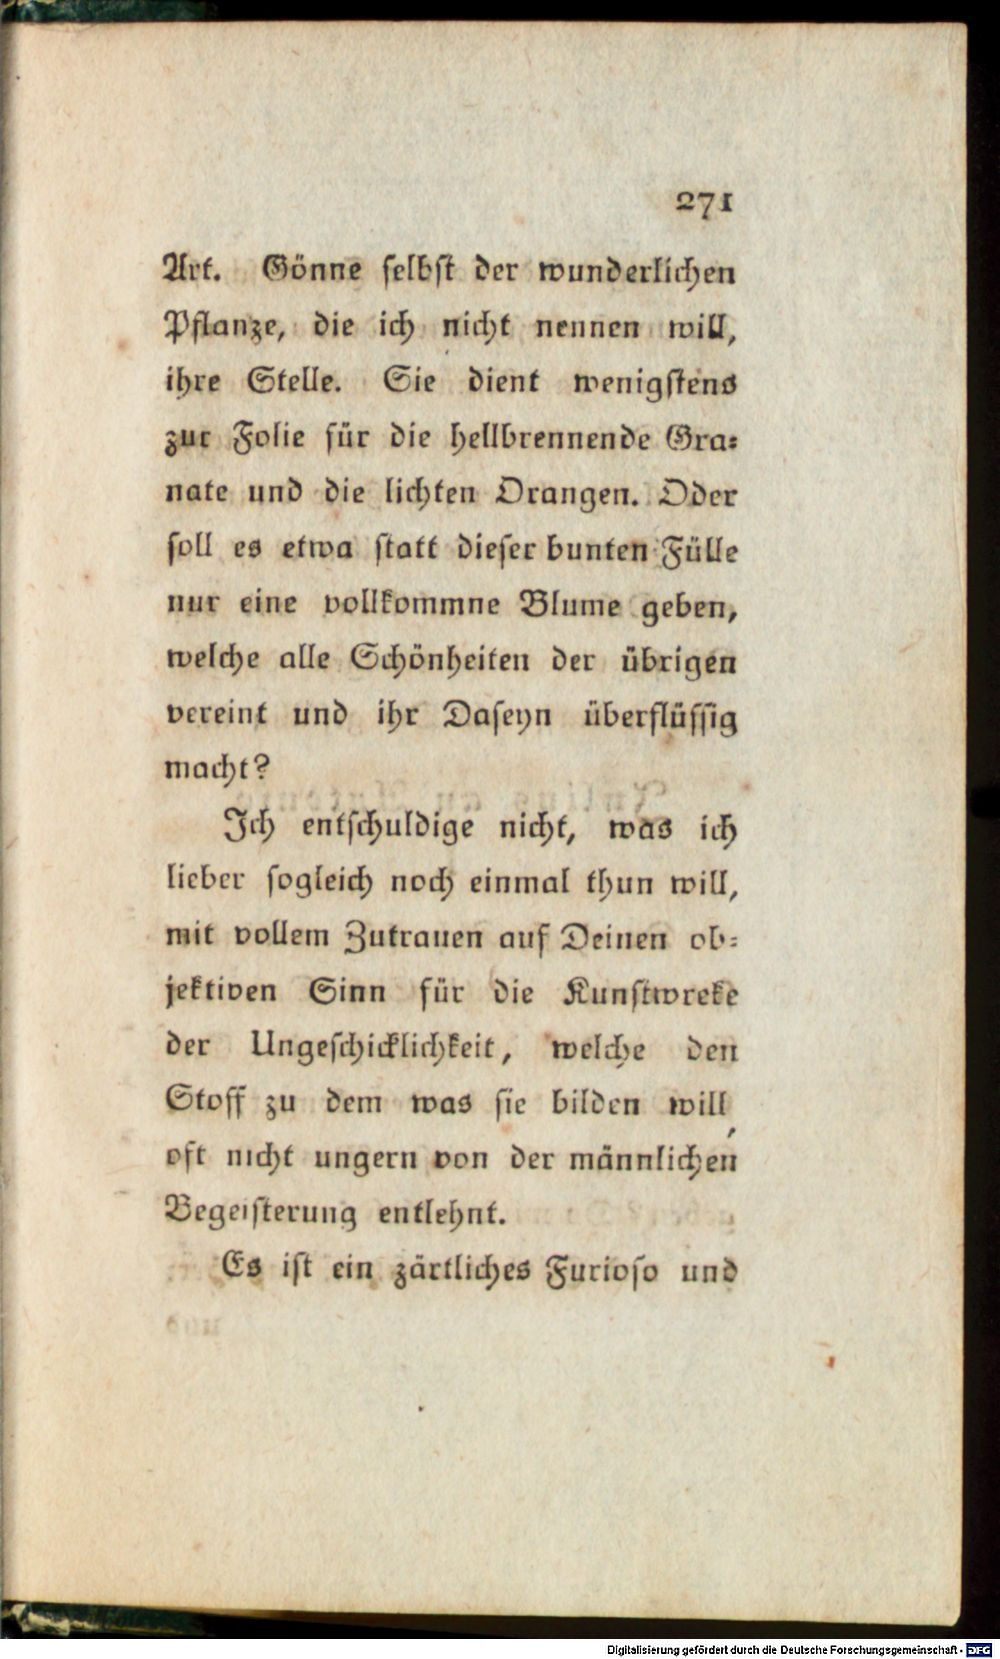 271
Art. Gönne selbst der wunderlichen
Pflanze, die ich nicht nennen will,
ihre Stelle. Sie dient wenigstens
zur Folie für die hellbrennende Gra⸗
nate und die lichten Orangen. Oder
soll es etwa statt dieser bunten Fülle
nur eine vollkommne Blume geben,
welche alle Schönheiten der übrigen
vereint und ihr Daseyn überflüssig
macht?
Ich entschuldige nicht, was ich
lieber sogleich noch einmal thun will,
mit vollem Zutrauen auf Deinen ob⸗
jektiven Sinn für die Kunstwreke
der Ungeschicklichkeit, welche den
Stoff zu dem was sie bilden will,
oft nicht ungern von der männlichen
Begeisterung entlehnt.
Es ist ein zärtliches Furioso und
Digitalisierung gefördert durch die Deutsche Forschungsgemeinschaft - DFG